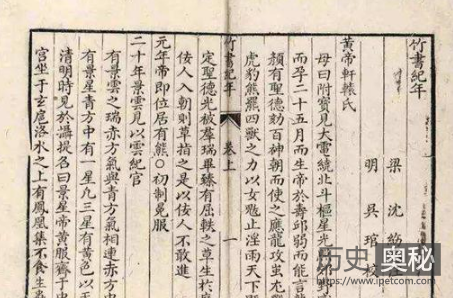 竹書紀年
梁 沈約
明 吳琯校
黃帝軒轅氏
母曰附寶見大電繞北斗樞星光照郊
而孕二十五月而生帝於壽邱弱而能言
顏有聖德劾百神朝而使之應龍攻蚩尤
虎豹熊羆四獸之力以女魃止淫雨天下
竹書紀年 卷上 一
定聖德光被羣瑞畢臻有屈軼之草生於
佞人入朝則草指之是以佞人不敢進
元年帝即位居有熊○初制冕服
二十年景雲見以雲紀官
有景雲之瑞赤方氣與青方氣相連赤方中
有星青方中有一星凡三星有黃色以天
清明時見於攝提名曰景星帝黃服齋于中
宮坐于玄扈洛水之上有鳳凰集不食生
历史奥秘
www.ipetcom.com